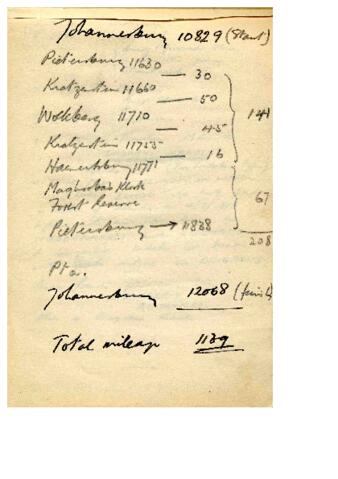 Johannesburg 10829 (Start)
Pietersburg 11630
— 30
Kratzenstein 11660
— 50
Wolkberg 11710
— 45
141
Kratzenstein 11755
— 16
Haenertsburg 11771
Magoebas Kloof
Forest Reserve
67
Pietersburg → 11838
208
Pta.
Johannesburg 12068 (finish)
Total mileage 1139